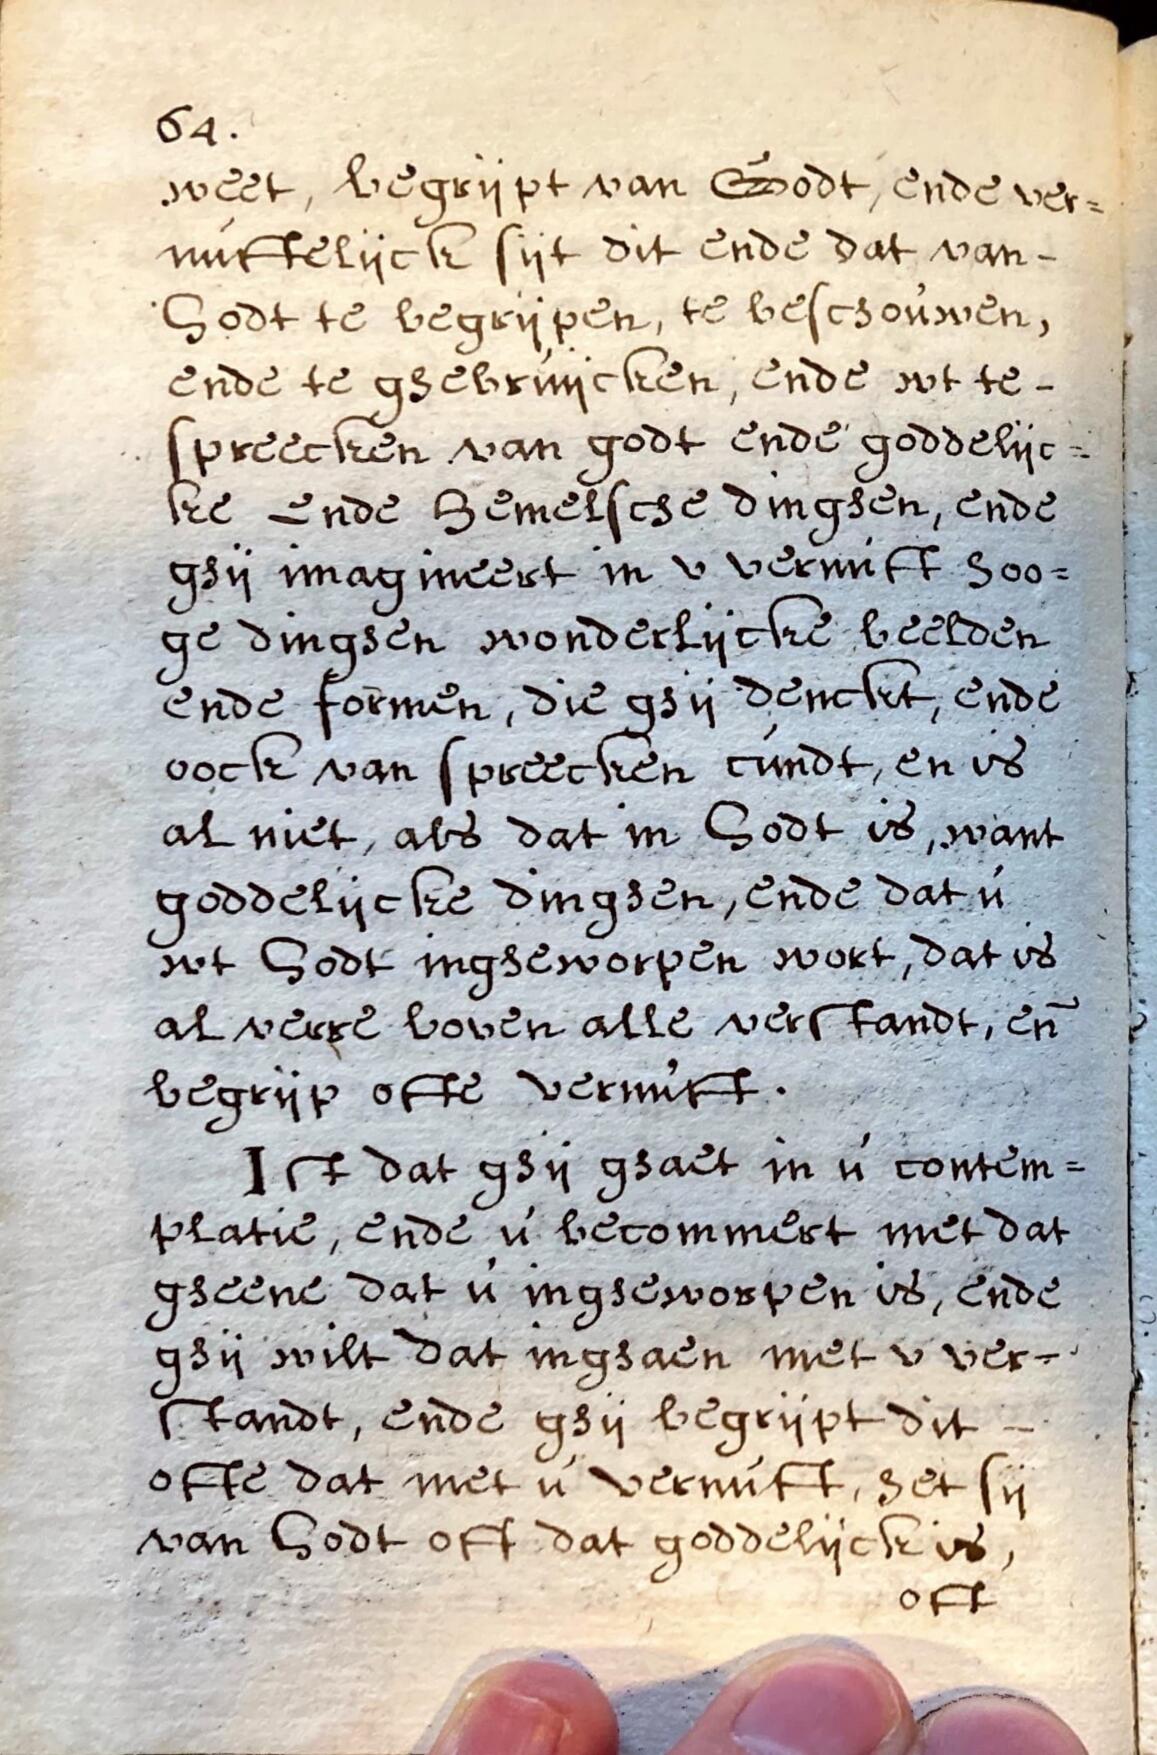 64.
weet, begrijpt van Godt, ende ver=
nuftelijck sijt dit ende dat van-
Godt te begrijpen, te beschouwen,
ende te ghebruijcken, ende wt te-
spreecken van godt ende goddelijc=
ke ende hemelsche dinghen, ende
ghij imagineert in v vernuft hoo=
ge dinghen wonderlijcke beelden
ende formen, die ghij denckt, ende
oock van spreecken cundt, en is
al niet, als dat in Godt is, want
goddelijcke dinghen, ende dat u
wt Godt ingheworpen wort, dat is
al verre boven alle verstandt, en̄
begrijp ofte vernuft.
Ist dat ghij ghaet in u contem=
platie, ende u becommert met dat
gheene dat u ingheworpen is, ende
ghij wilt dat inghaen met v ver-
standt, ende ghij begrijpt dit -
ofte dat met u vernuft, het sij
van Godt oft dat goddelijck is,
oft